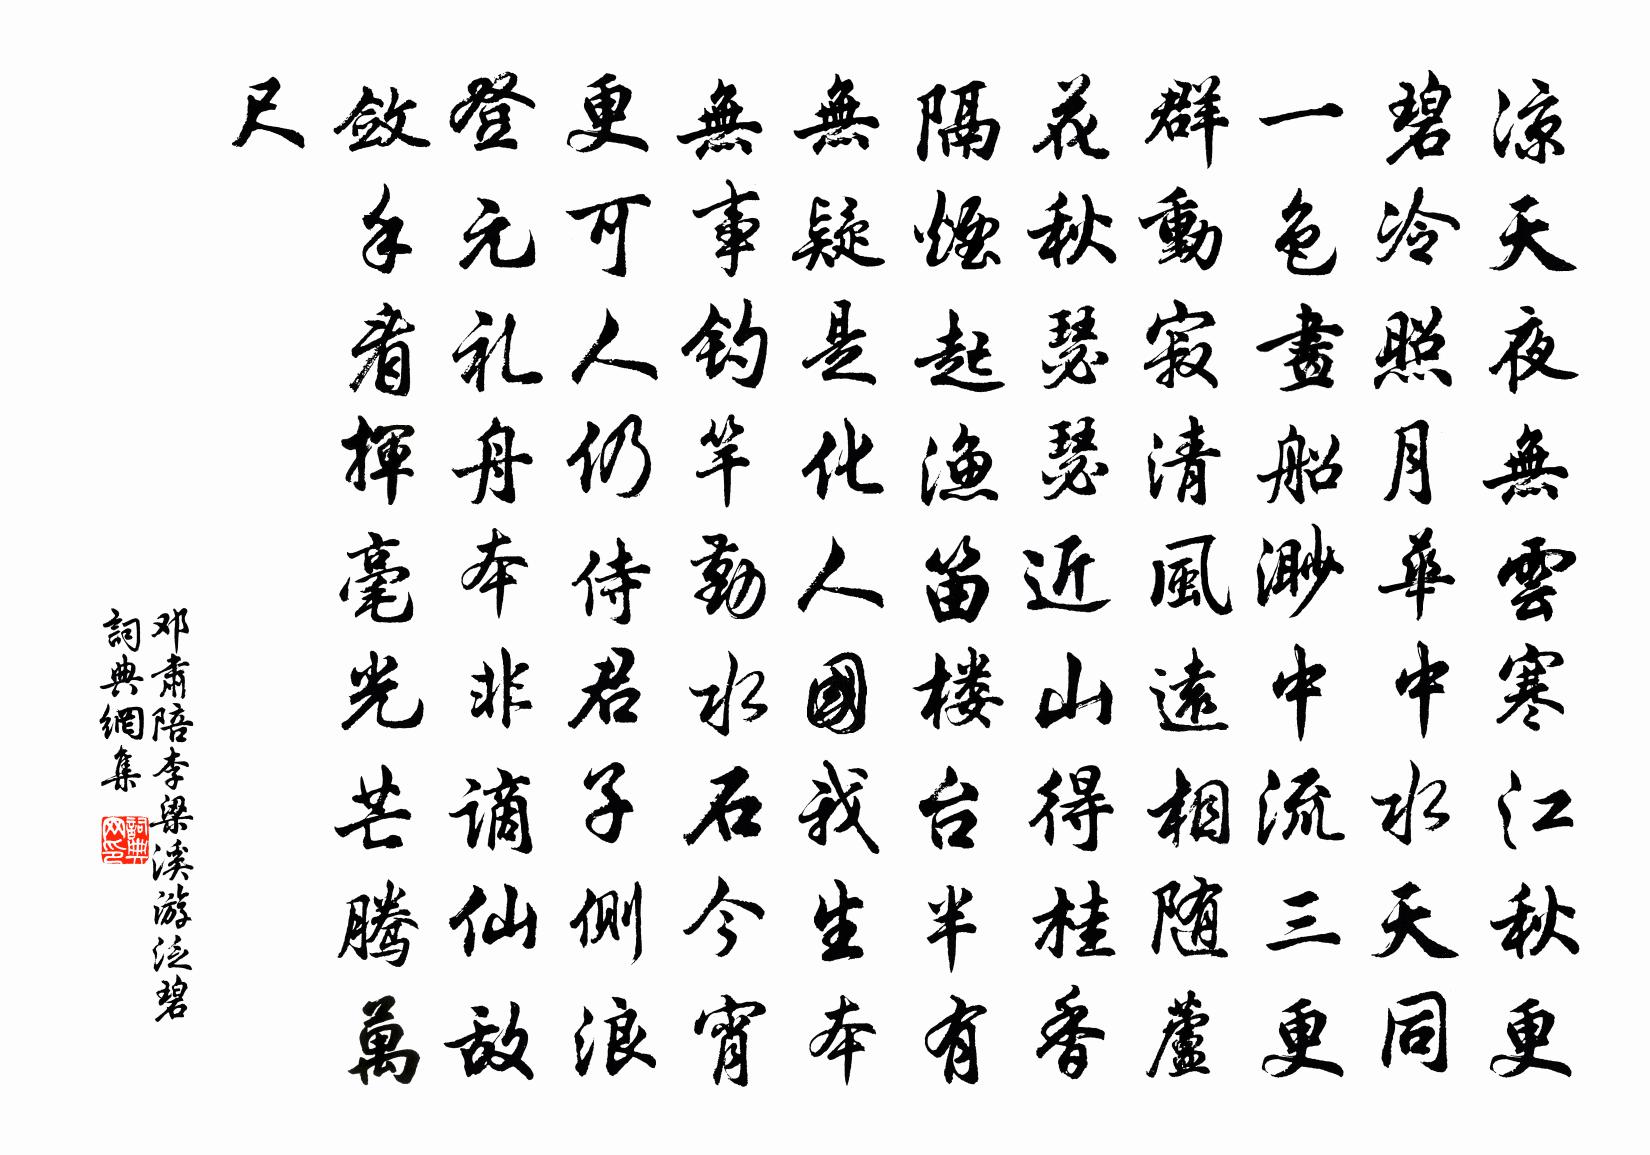 涼天夜無雲寒江秋更
碧冷照月華中水天同
一色畫船渺中流三更
群動寂清風遠相随蘆
花秋瑟瑟近山得桂香
隔煙起漁笛楼台半有
無疑是化人國我生本
無事釣竿勤水石今宵
更可人仍侍君子側浪
登元礼舟本非謫仙敌
斂手看揮毫光芒騰萬
尺
邓肅陪李梁溪游泛碧
詞典網集
詞典網印